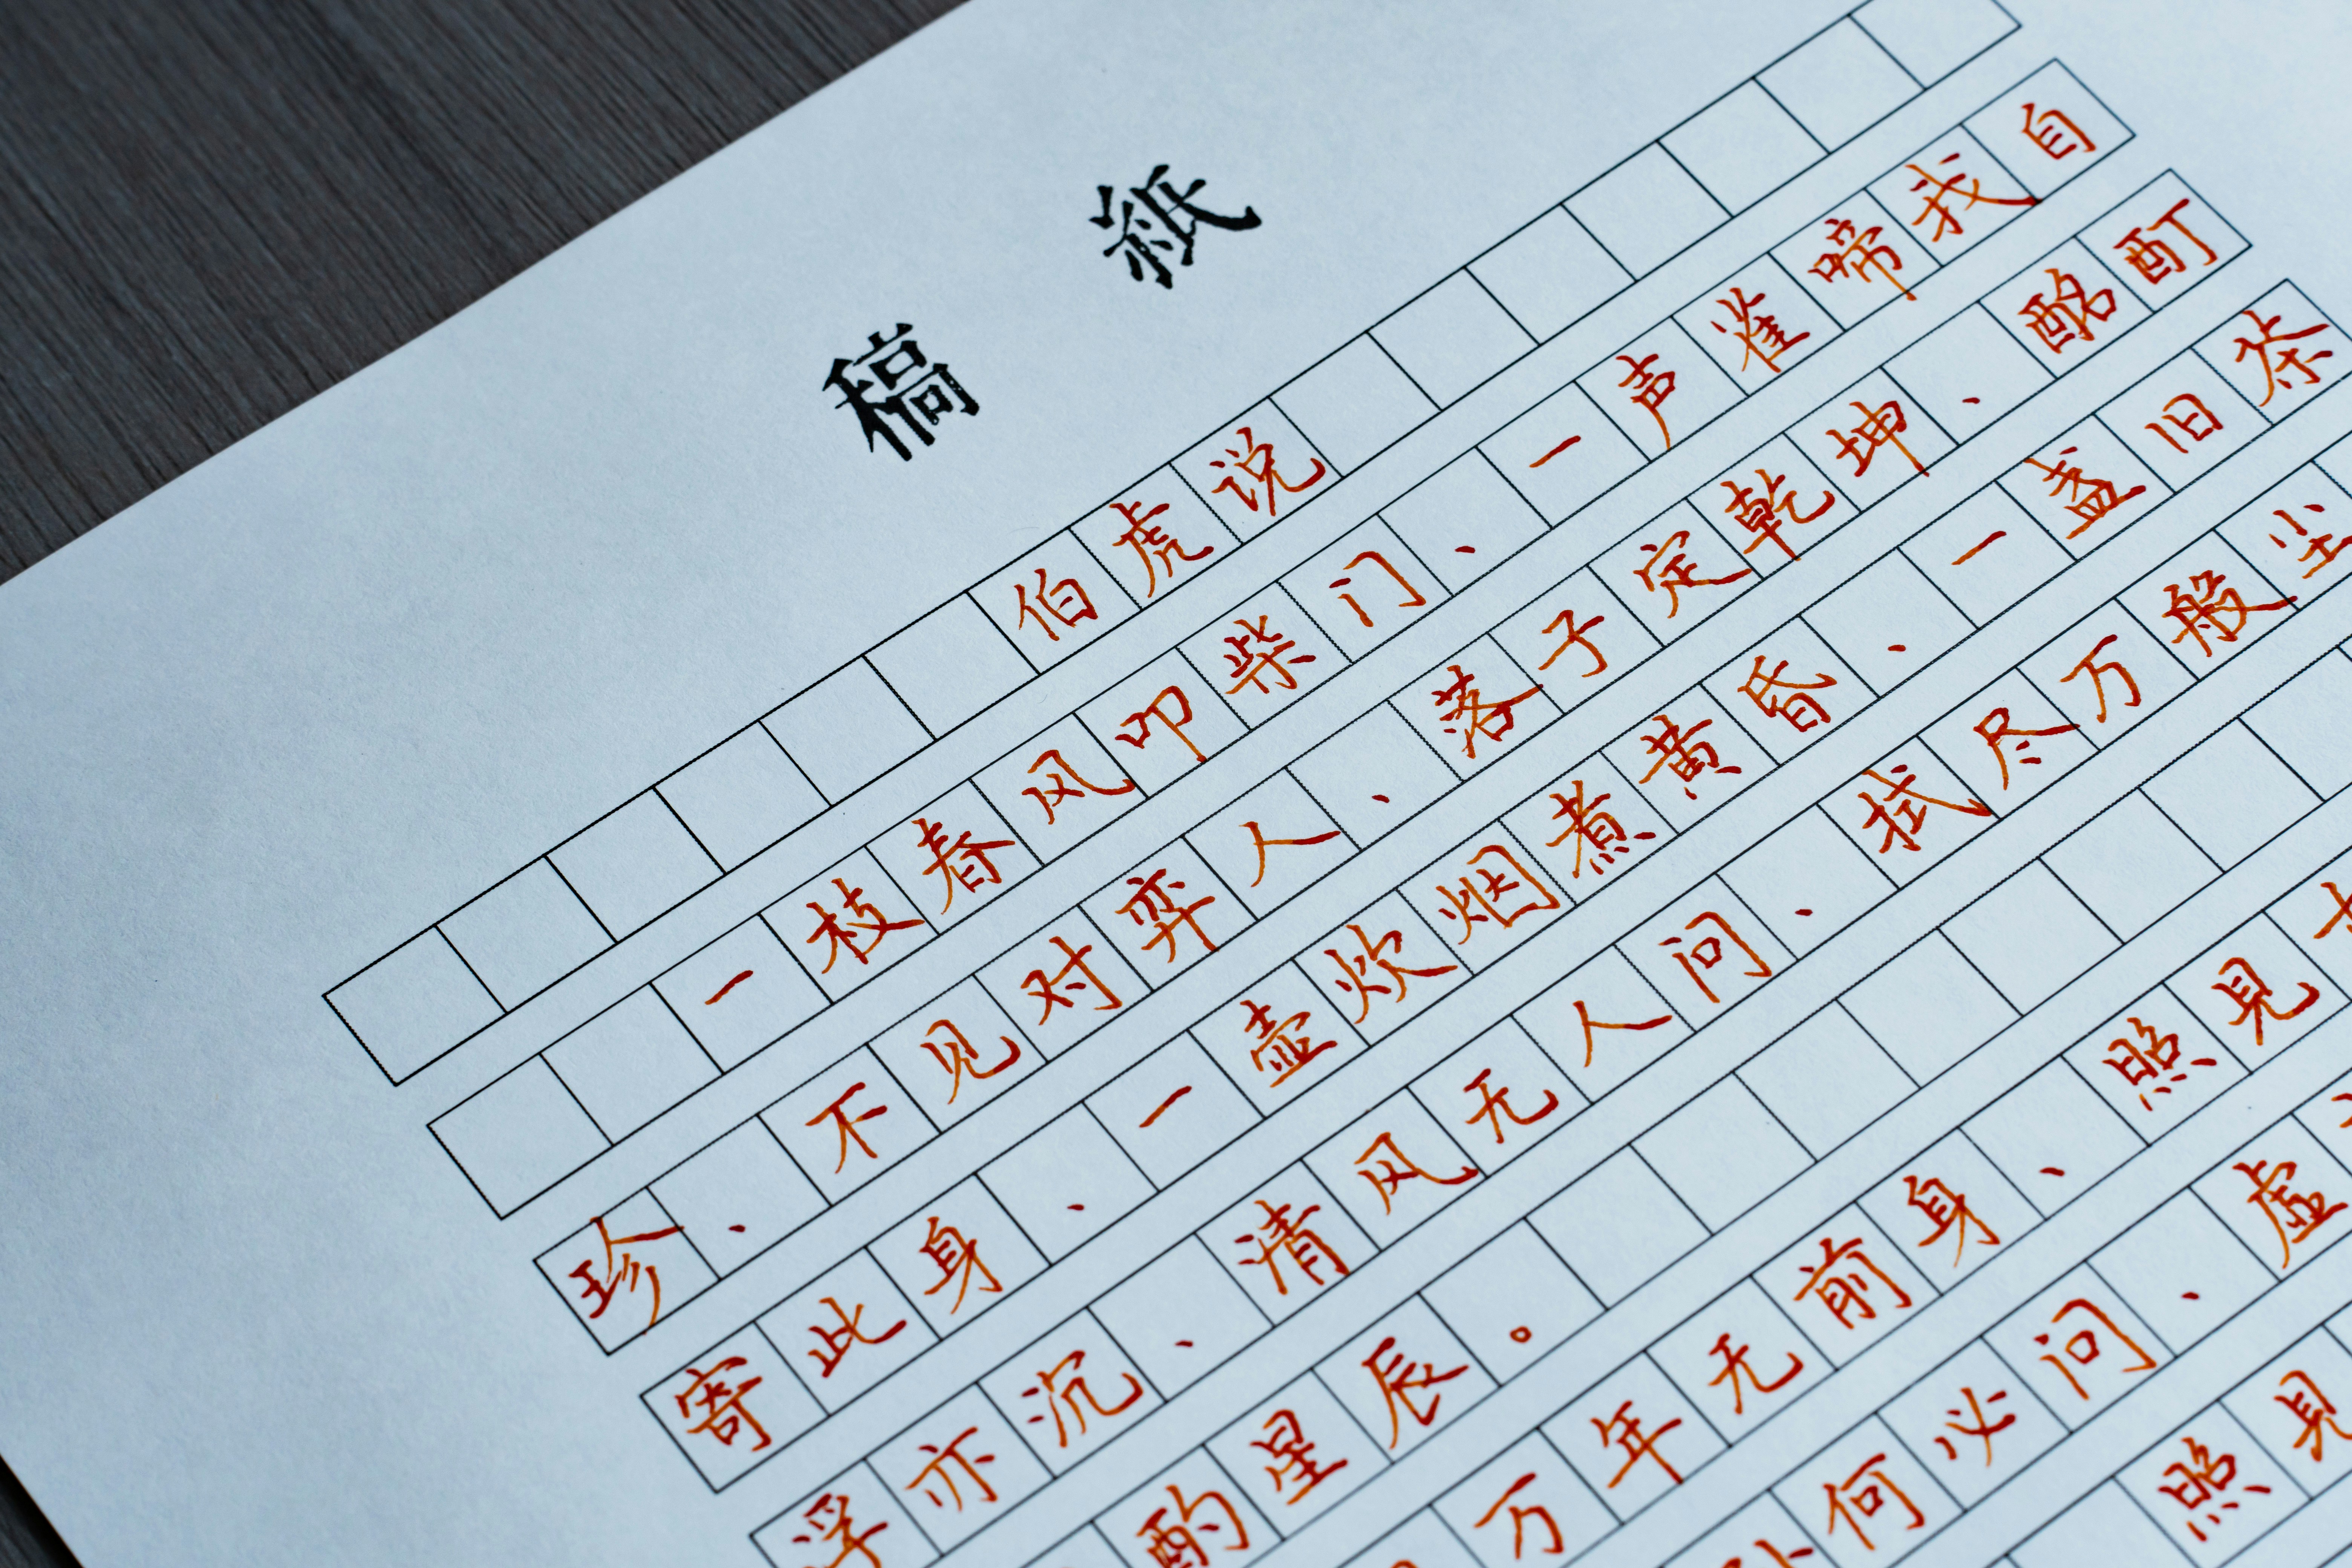 稿紙
伯虎说
一枝春风叩柴门、一声雀啼我自
珍、不见对弈人、落子定乾坤、酩酊
寄此身、一壶炊烟煮黄昏、一盏旧茶
浮亦沉、清风无人问、拭尽万般尘
酌星辰。
万年无前身、照見
何必问、虚
照見